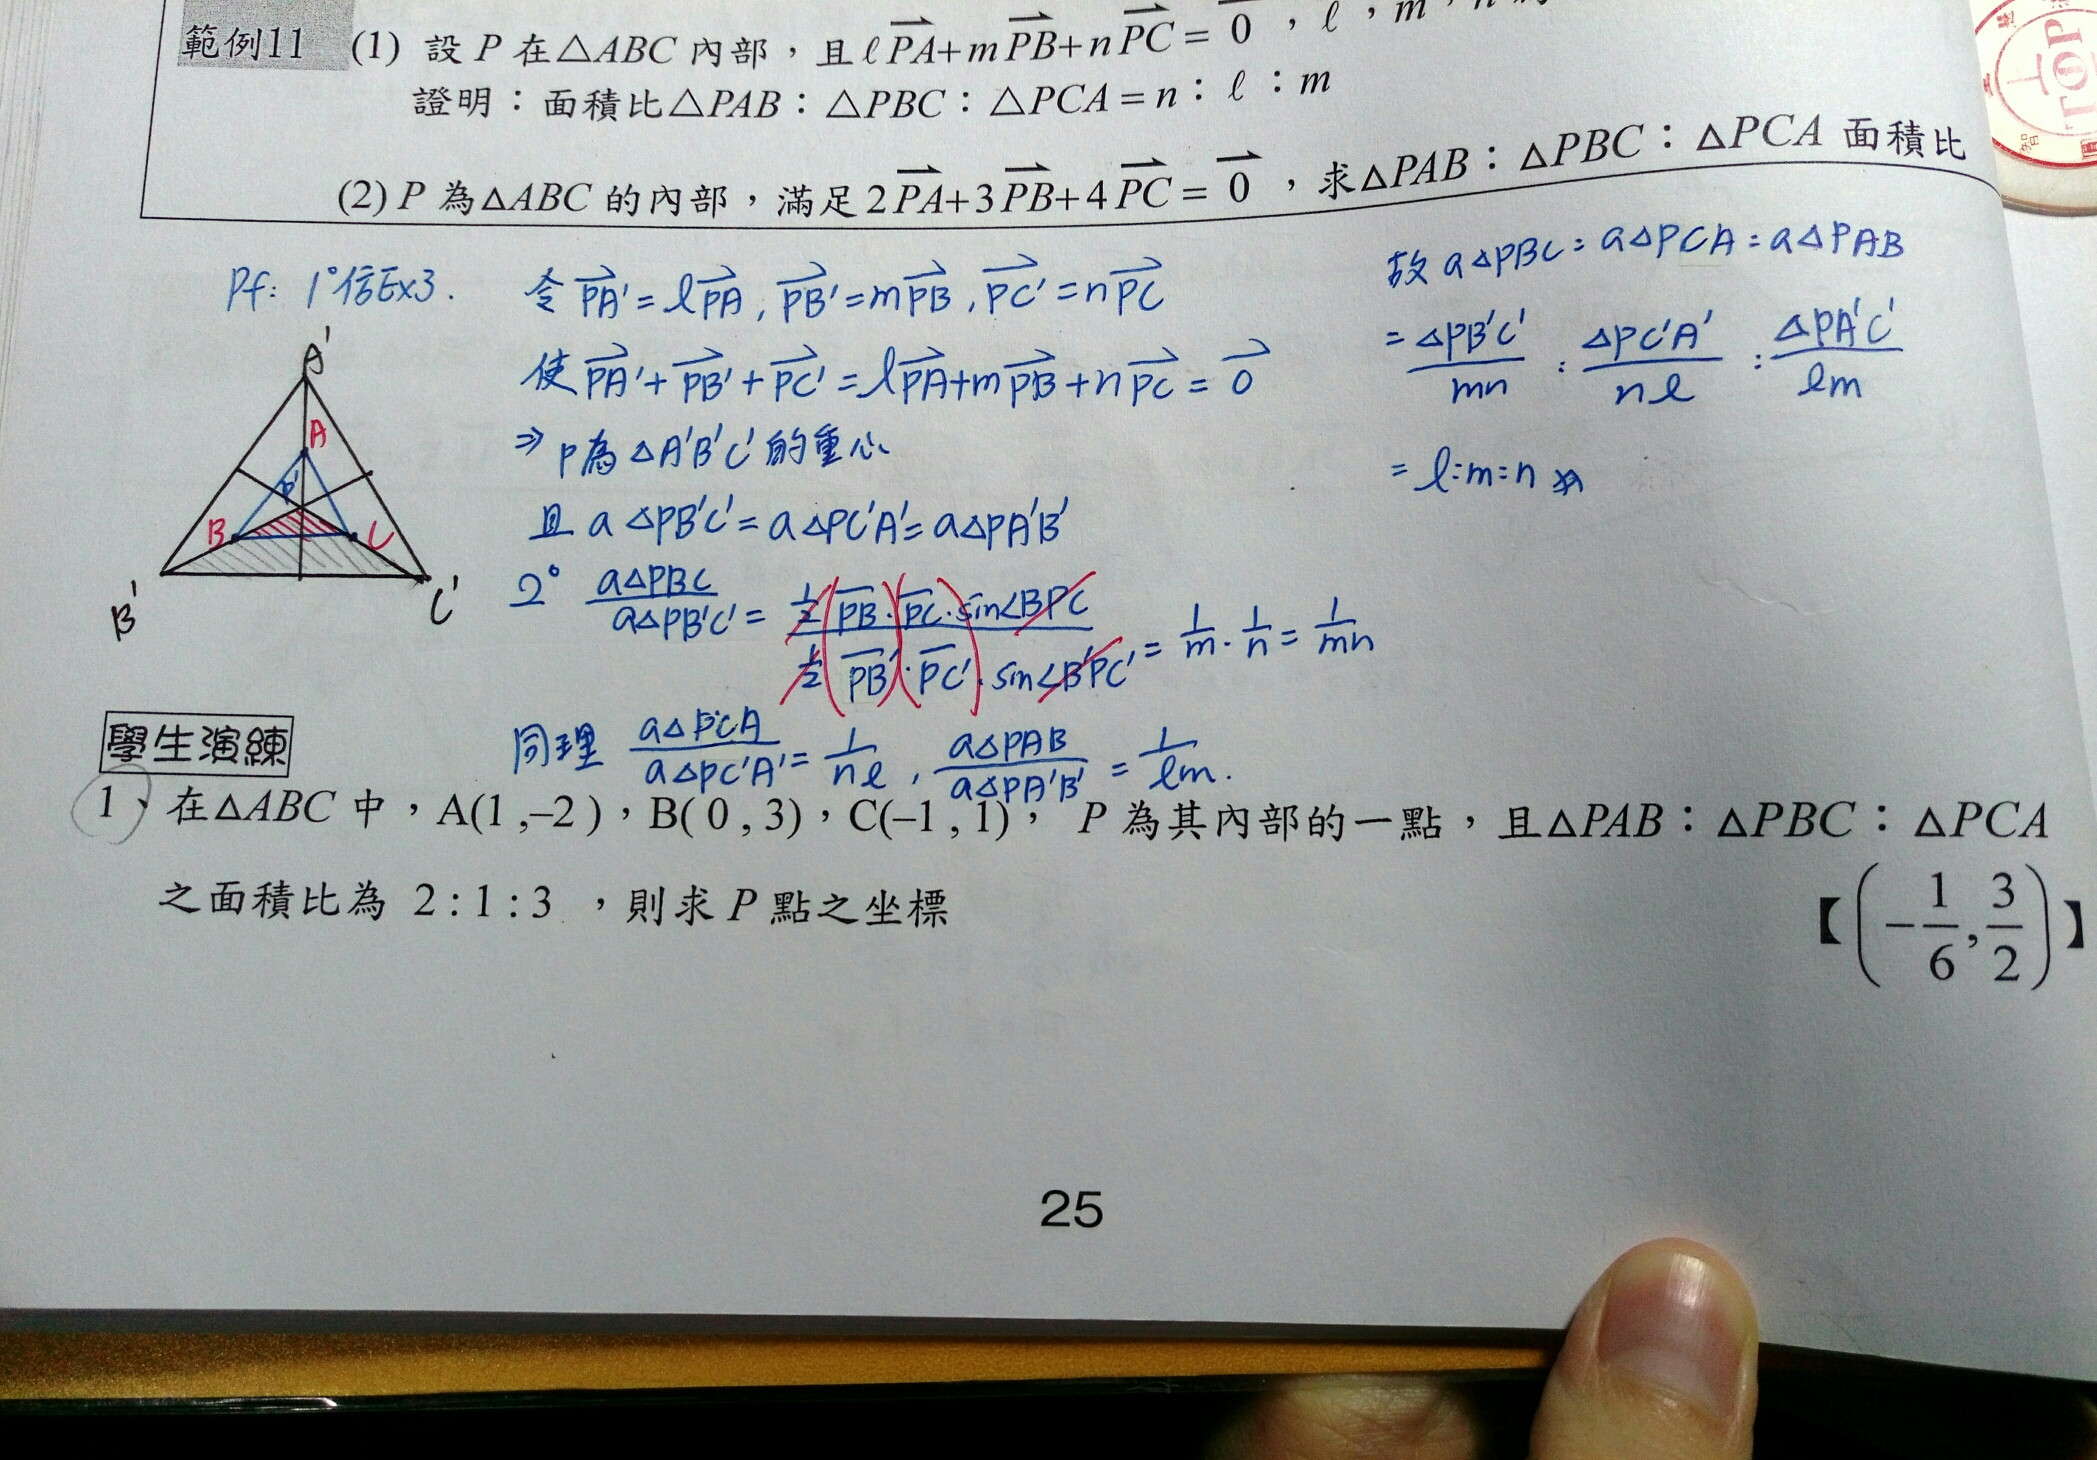 範例11 (1) 設 P 在△ABC 內部，且ℓPA+mPB+nPC = 0，ℓ，m，n
證明：面積比△PAB：△PBC：△PCA = n：ℓ：m
(2) P 為△ABC 的內部，滿足2PA+3PB+4PC = 0，求△PAB：△PBC：△PCA 面積比
Pf: 1° 倍Ex3. 令 PA' = ℓPA, PB' = mPB, PC' = nPC
使 PA' + PB' + PC' = ℓPA + mPB + nPC = 0
⇒ P為△A'B'C'的重心
且 a△PB'C' = a△PC'A' = a△PA'B'
2° a△PBC/a△PB'C' = ½ PB·PC·sin∠BPC / ½ PB'·PC'·sin∠B'PC' = 1/m · 1/n = 1/mn
同理 a△PCA/a△PC'A' = 1/nℓ, a△PAB/a△PA'B' = 1/ℓm.
故 a△PBC : a△PCA : a△PAB
= △PB'C'/mn : △PC'A'/nℓ : △PA'C'/ℓm
= ℓ:m:n
A'
A
P
B C
B' C'
學生演練
1、在△ABC 中，A(1 ,–2 )，B( 0 , 3)，C(–1 , 1)， P 為其內部的一點，且△PAB：△PBC：△PCA
之面積比為 2 : 1 : 3 ，則求 P 點之坐標 【(−1/6, 3/2)】
25
TOP